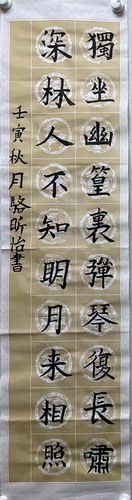 獨坐幽篁裏彈琴復長嘯
深林人不知明月来相照
壬寅秋月駱昕怡書